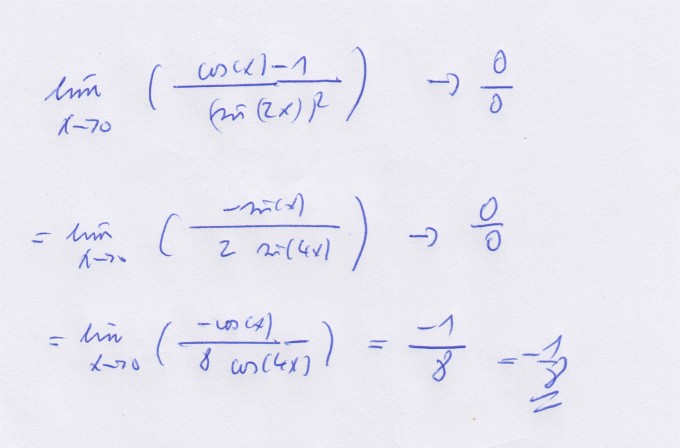 lim x→0 ( cos(x)-1 / (sin(2x))² ) → 0/0
= lim x→0 ( -sin(x) / 2 sin(4x) ) → 0/0
= lim x→0 ( -cos(x) / 8 cos(4x) ) = -1/8 = -1/8